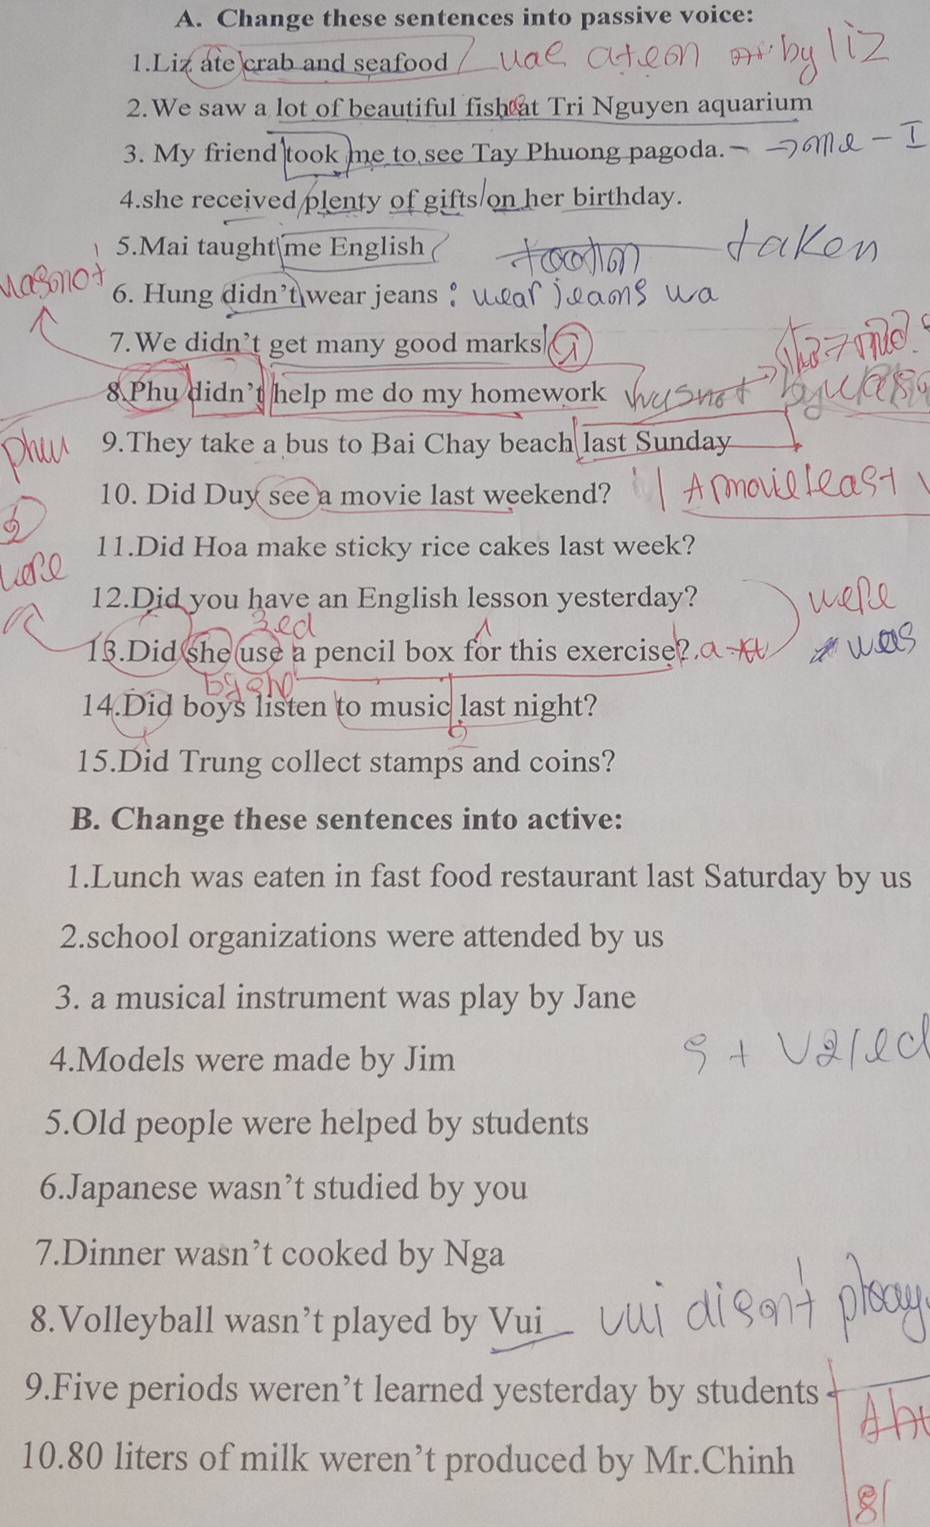 A. Change these sentences into passive voice:
1.Liz ate crab and seafood uae ateon by liz
2.We saw a lot of beautiful fish at Tri Nguyen aquarium
3. My friend took me to see Tay Phuong pagoda. → me - I
4.she received plenty of gifts on her birthday.
5.Mai taught me English taken
wasnot
6. Hung didn't wear jeans : wear jeans wa
7.We didn't get many good marks
8.Phu didn't help me do my homework wasnot
phu 9.They take a bus to Bai Chay beach last Sunday
10. Did Duy see a movie last weekend? A movie least
11.Did Hoa make sticky rice cakes last week?
were
12.Did you have an English lesson yesterday? were
13.Did she use a pencil box for this exercise? was
14.Did boys listen to music last night?
15.Did Trung collect stamps and coins?
B. Change these sentences into active:
1.Lunch was eaten in fast food restaurant last Saturday by us
2.school organizations were attended by us
3. a musical instrument was play by Jane
4.Models were made by Jim S + V2/ed
5.Old people were helped by students
6.Japanese wasn't studied by you
7.Dinner wasn't cooked by Nga
8.Volleyball wasn't played by Vui
9.Five periods weren't learned yesterday by students
10.80 liters of milk weren't produced by Mr.Chinh